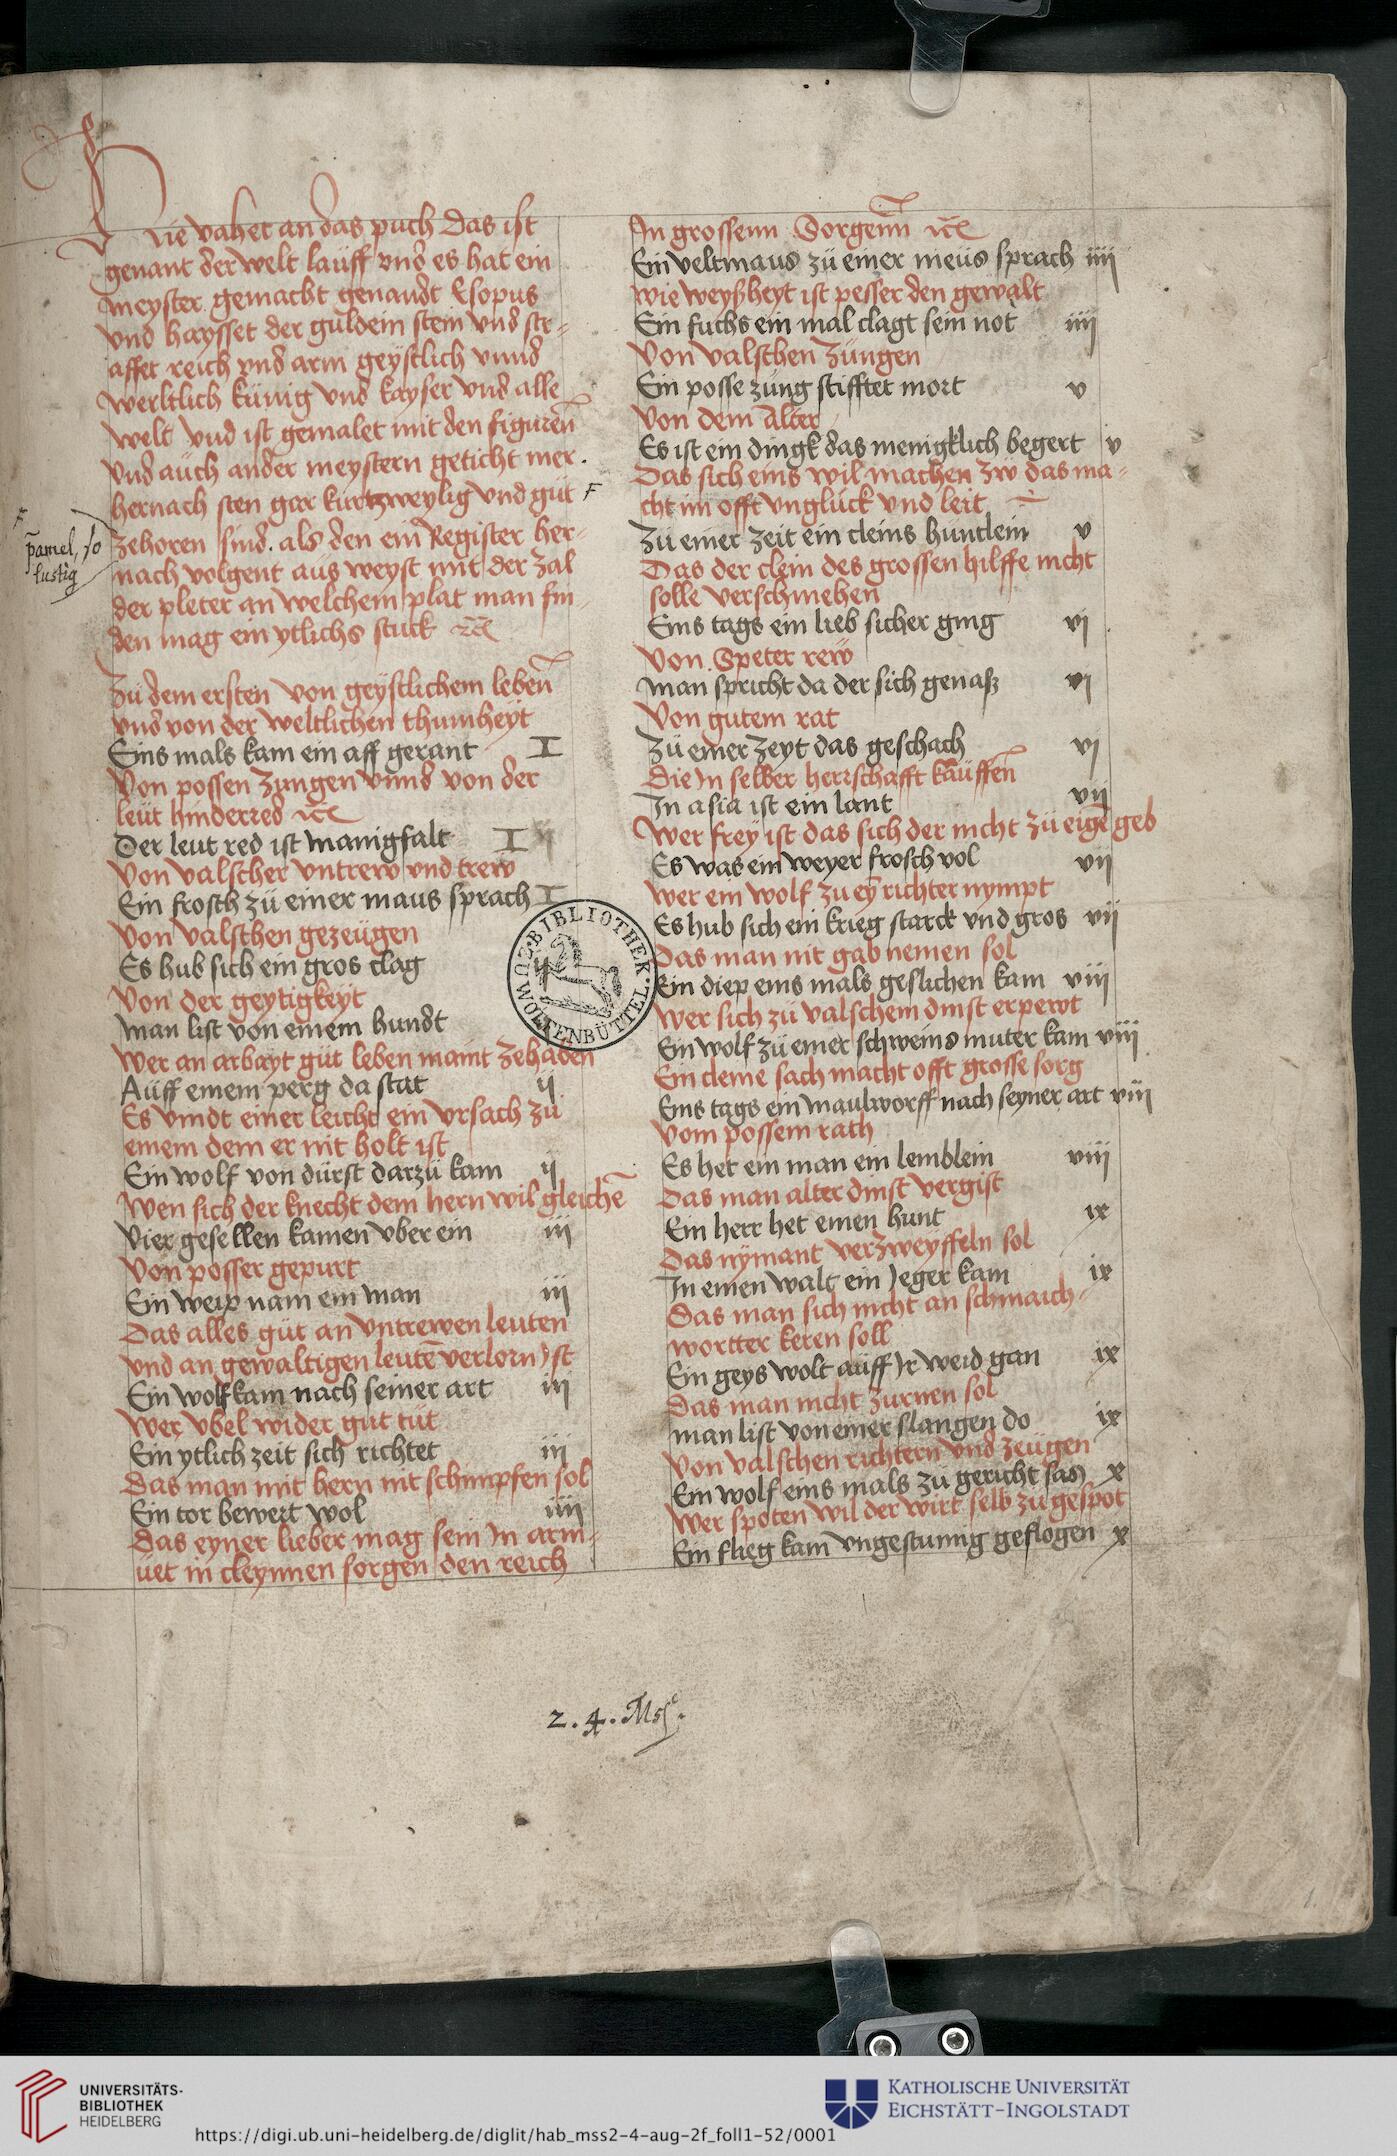 Hie vahet an das puch das ist
genant der welt lauff vnd es hat ein
meyster gemacht genandt Esopus
vnd haysset der guldein stein vnd str-
affet reich vnd arm geystlich vnnd
werltlich künig vnd kayser vnd alle
welt vnd ist gemalet mit den figuren
vnd auch ander meystern geticht mer.
hernach sten gar kurtzweylig vnd güt F
zehoren sind. als den ein Register her-
nach volgent aus weyst mit der zal
der pleter an welchem plat man fin-
den mag ein ytlichs stuck
F
lustig
Zü dem ersten von geystlichem leben
vnd von der weltlichen thumheyt
Eins mals kam ein aff gerant I
Von possen zungen vnnd von der
leüt hinderred
Der leut red ist manigfalt I
Von valscher vntrew vnd trew
Ein frosch zü einer maus sprach I
Von valschen gezeügen
Es hub sich ein gros clag ij
Von der geytigkeyt
Man list von einem hundt
Wer an arbayt güt leben maint zehaden
Aüff einem perg da stat ij
Es vindt einer leicht ein vrsach zü
einem dem er nit holt ist
Ein wolf von dürst darzü kam ij
Wen sich der knecht dem hern wil gleichē
Vier gesellen kamen vber ein iij
Von posser gepurt
Ein weip nam ein man iij
Das alles güt an vntrewen leuten
vnd an gewaltigen leutē verlorn Ist
Ein wolf kam nach seiner art iij
Wer vbel wider gut tüt
Ein ytlich zeit sich richtet iij
Das man mit hern nit schimpfen sol
Ein tor bewert wol iiij
Das eyner lieber mag sein In arm-
üet in cleynnen sorgen den reich
In grossenn Sorgenn
Ein veltmaus zü einer meüs sprach iiij
Wie weyßheyt ist pesser den gewalt
Ein fuchs ein mal clagt sein not iiij
Von valschen züngen
Ein posse zung stifftet mort v
Von dem Alter
Es ist ein dingk das menigklich begert v
Das sich eins wil machen zw das ma-
cht im offt vnglück vnd leit
Zü einer zeit ein cleins huntlein v
Das der clein des grossen hilffe nicht
solle verschmehen
Eins tags ein lieb sicher ging vj
Von Speter rew
Man spricht da der sich genaß vj
Von gutem rat
Zü einer zeyt das geschach vj
Die In selber herrschafft kauffen
In asia ist ein lant vij
Wer frey ist das sich der nicht zü eigē geb
Es was ein weyer frosch vol vij
Wer ein wolf zu eȳ richter nympt
Es hub sich ein krieg starck vnd gros vij
Das man nit gab nemen sol
Ein diep eins mals geslichen kam viij
Wer sich zü valschem dinst erpewt
Ein wolf zü einer schweins muter kam viij
Ein cleine sach macht offt grosse sorg
Eins tags ein maulworff nach seyner art viij
Vom possem rath
Es het ein man ein lemblein viij
Das man alter dinst vergist
Ein herr het einen hunt ix
Das nymant verzweyffeln sol
In einen walt ein Jeger kam ix
Das man sich nicht an schmaich-
wortter keren soll
Ein geys wolt aüff Ir weid gan ix
Das man nicht zurnen sol
Man list von einer slangen do ix
Von valschen richtern vnd zeügen
Ein wolf eins mals zü gericht sas x
Wer spoten wil der wirt selb zü gespot
Ein flieg kam vngestumig geflogen x
BIBLIOTHEK
WOLFENBÜTTEL
2. 4. Mss.
UNIVERSITÄTS-
BIBLIOTHEK
HEIDELBERG
KATHOLISCHE UNIVERSITÄT
EICHSTÄTT-INGOLSTADT
https://digi.ub.uni-heidelberg.de/diglit/hab_mss2-4-aug-2f_foll1-52/0001